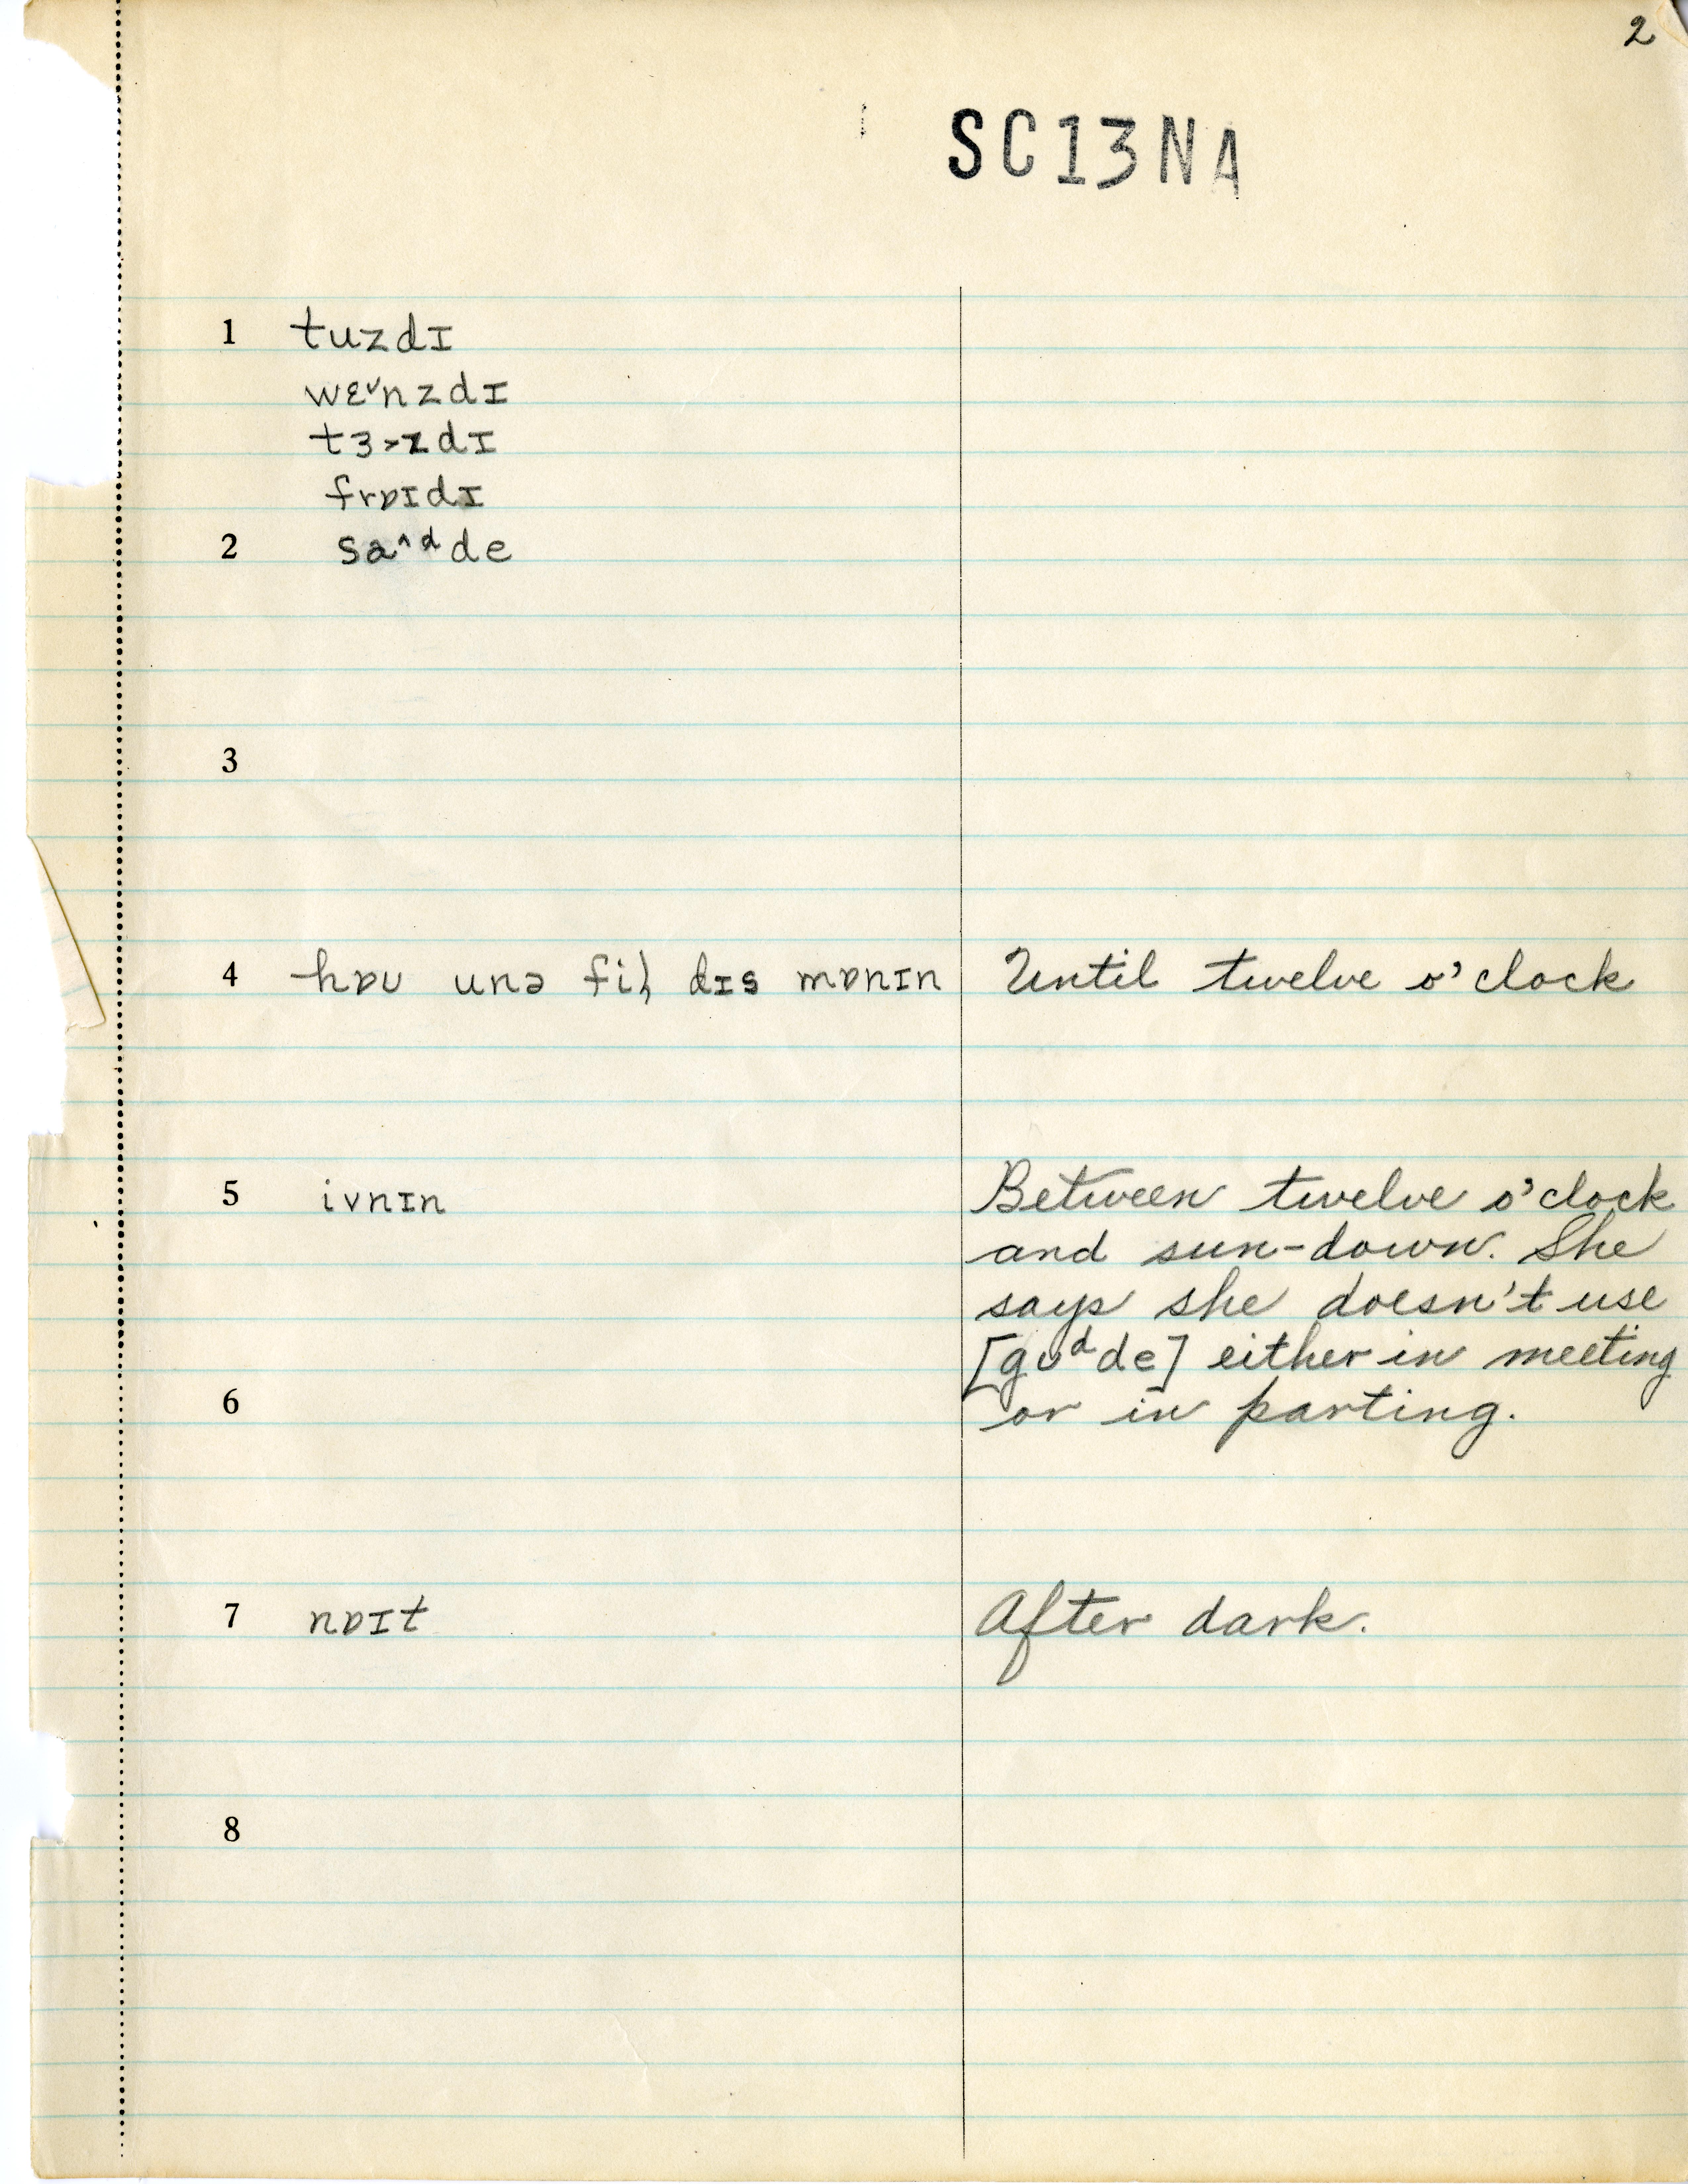 2
SC13NA
1 tuzdɪ
wɛ˅nzdɪ
tɜ˃zdɪ
frɒɪdɪ
2 sa^ᵈde
3
4 hɒʊ unə fil̩ dɪs mɒnɪn Until twelve o'clock
5 ivnɪn Between twelve o'clock
and sun-down. She
says she doesn't use
[gʊᵈde] either in meeting
6 or in parting.
7 nɒɪt After dark.
8